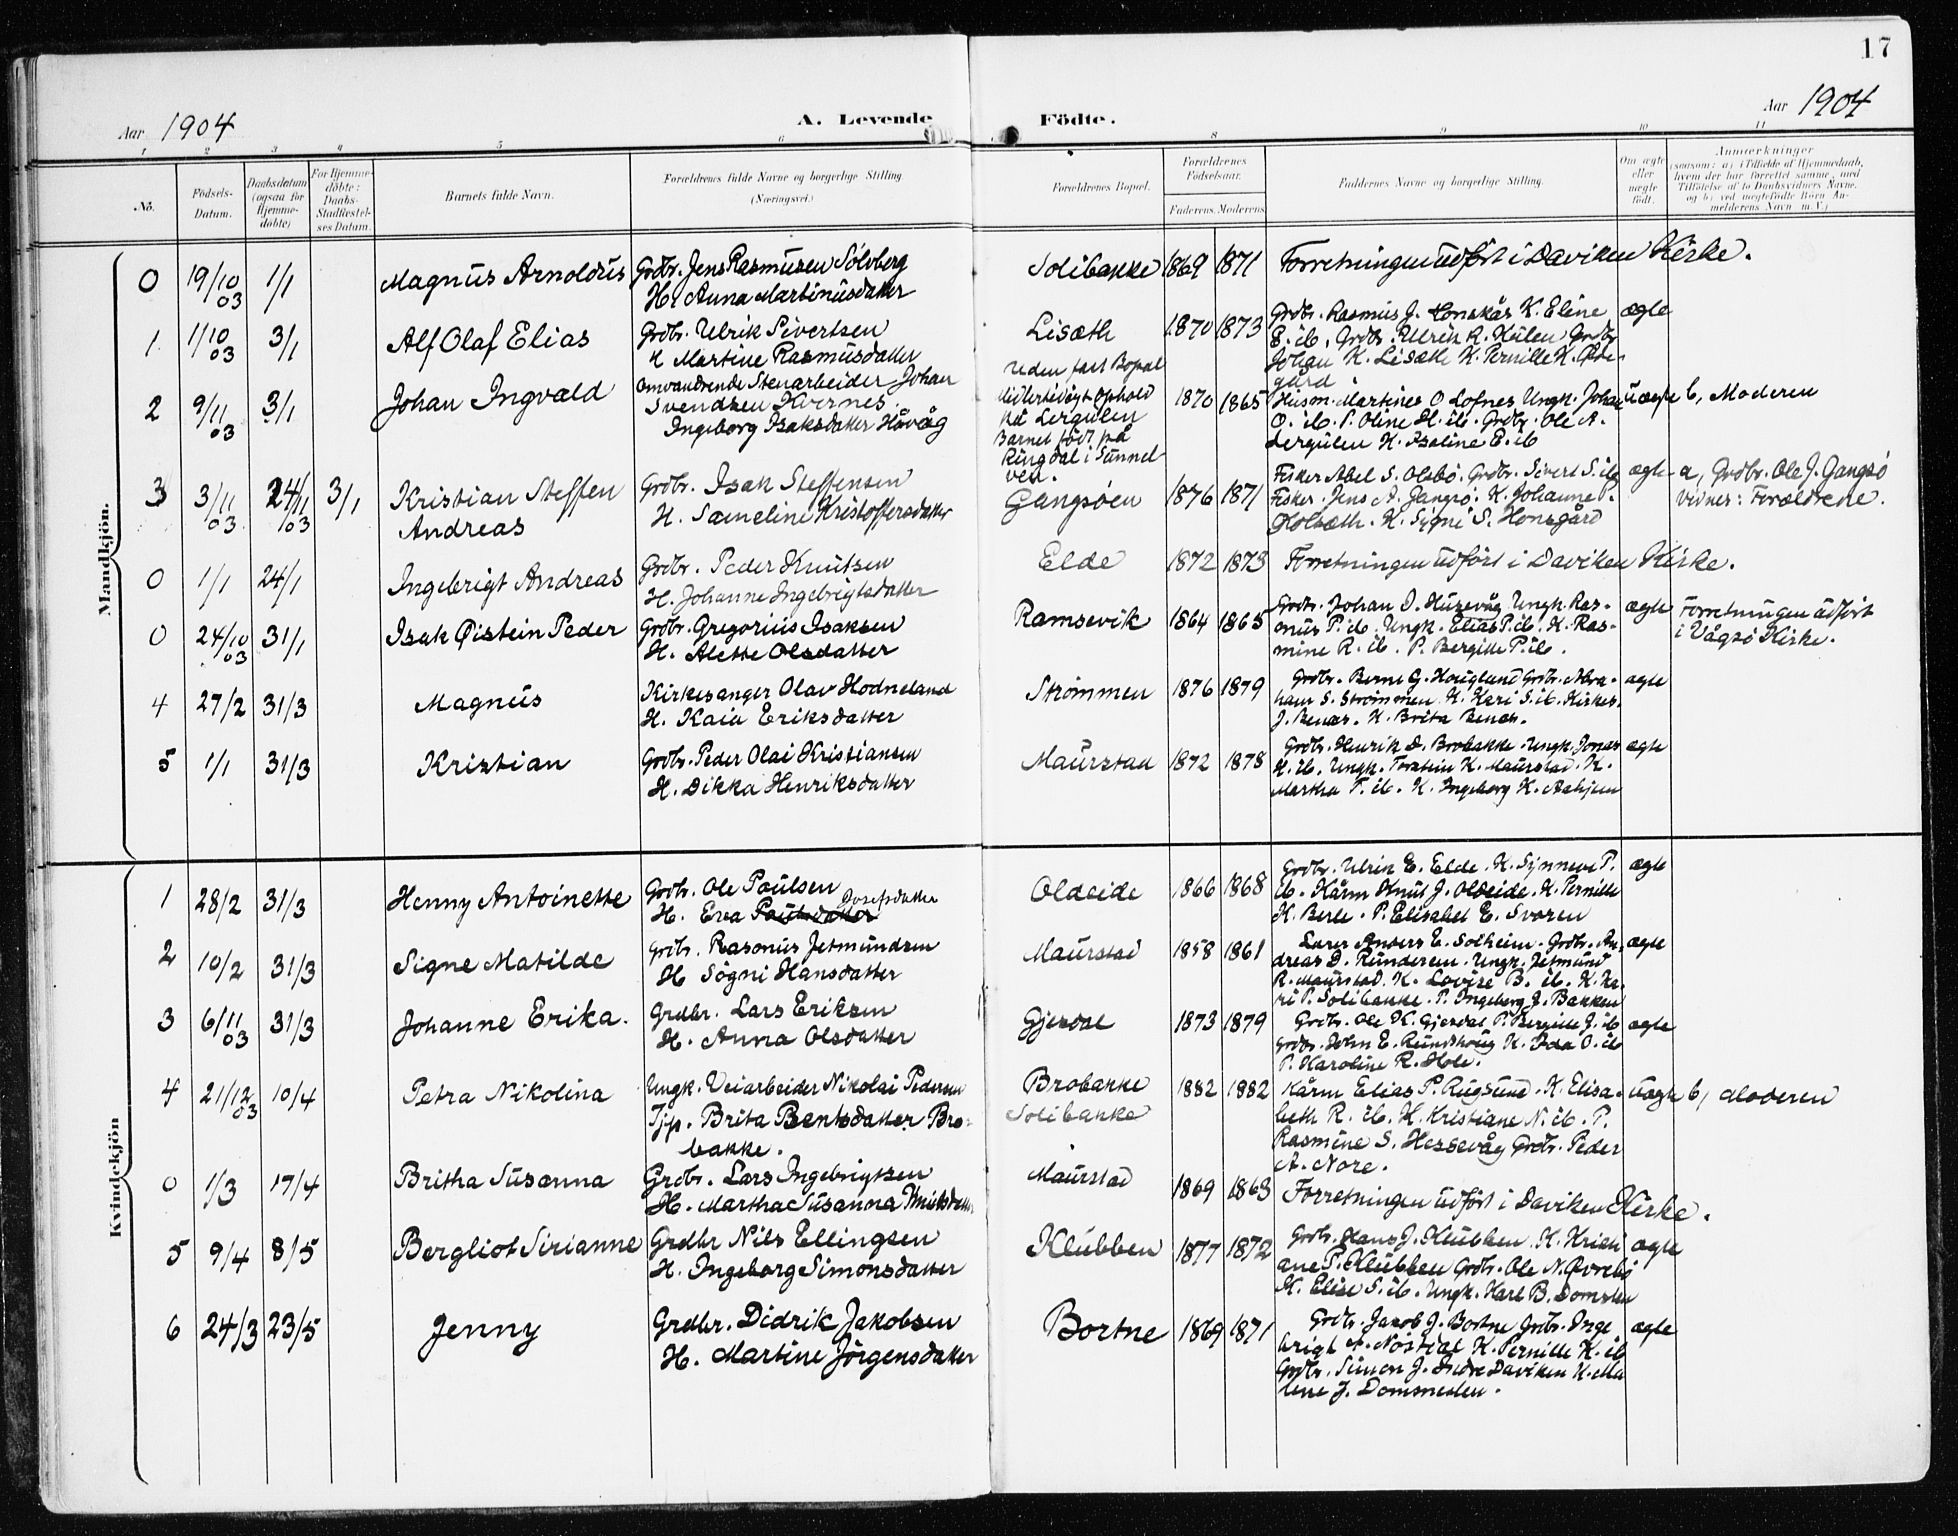 17
Aar 1904
A. Levende Födte.
Aar 1904
1 2 3 4 5 6 8 9 10 11
No.
Födsels-Datum.
Daabsdatum (ogsaa for Hjemme-döbte)
For Hjemme-döbte: Daabs-Stadfæstel-ses Datum.
Barnets fulde Navn.
Forældrenes fulde Navne og borgerlige Stilling. (Næringsvei.)
Forældrenes Bopæl.
Forældrenes Födselsaar.
Faderens. Moderens.
Faddernes Navne og borgerlige Stilling.
Om ægte eller uægte födt.
Anmærkninger
(saasom: a) i Tilfælde af Hjemmedaab,
hvem der har forrettet samme, med
Tilföielse af to Daabsvidners Navne.
og b) ved uægtefödte Börn An-
melderens Navn m. V.)
Mandkjön.
0 19/10 03 1/1 Magnus Arnoldus Grdbr. Jens Rasmusen Sölvberg
H. Anna Martinusdatter
Solibakke 1869 1871 Forretningen udført i Daviken Kirke.
1 1/10 03 3/1 Alf Olaf Elias Grdbr. Ulrik Sivertsen
H Martine Rasmusdatter
Lisæth 1870 1873 Grdbr. Rasmus J. K. Eline ægte
E. ib. Grdbr. Ulrik R. Grdbr.
Johan K. Lisæth K. Pernille K. Øde-
gård
2 9/11 03 3/1 Johan Ingvald omvandrende Stenarbeider Johan
Svendsen Kvernes
Ingeborg Isaksdatter Håvåg
uden fast Bopæl
midlertidigt ophold
på Lergulen
Barnet født på
Ringdal i Sunnel-
ven.
1870 1865 Husm. Martines O Lofnes Ungk. Johan uægte b, Moderen
O. ib. P. Oline H. ib. Grdbr. Ole A.
Lergulen K. E. ib
3 3/11 03 24/11 03 3/1 Kristian Steffen
Andreas
Grdbr. Isak Steffensen
H. Sameline Kristoffersdatter
Gangsöen 1876 1871 Fisker Abel S. Grdbr. Sivert S. ib ægte a, Grdbr. Ole J. Gangsö
Fisker Jens A. Gangsö. K. Johanne P. vidner: Forældrene.
K. S. Honsgård
0 1/1 24/1 Ingebrigt Andreas Grdbr. Peder Knutsen
H. Johanne Ingebrigtsdatter
Elde 1872 1873 Forretningen udført i Daviken Kirke.
0 24/10 03 31/1 Isak Øistein Peder Grdbr. Gregorius Isaksen
H. Alette Olsdatter
Ramsevik 1864 1865 Grdbr. Johan D. Husevåg Ungk. Ras- ægte Forretningen udført
mus P. ib. Ungk. Elias P. ib. K. Ras- i Vågsö Kirke.
mine R. ib. P. Bergitte P. ib.
4 27/2 31/3 Magnus Kirkesanger Olav Hodneland
H. Kaia Eriksdatter
Strömmen 1876 1879 Grdbr. Berne G. Houglund Grdbr. Abra- ægte
ham S. Strömmen K. Kari S. ib. Kirkes.
J. Benæs. K. Brita Benæs.
5 1/1 31/3 Kristian Grdbr. Peder Olai Kristiansen
H. Dikka Henriksdatter
Maurstad 1872 1878 Grdbr. Henrik D. Brobakke. Ungk. Jonas ægte
H. ib. Ungk. Torstein K. Maurstad. K.
Martha T. ib. K. Ingeborg K. Askjem
Kvindekjön
1 28/2 31/3 Henny Antoinette Grdbr. Ole Paulsen
H. Eva Paulsdatter Josefsdatter
Oldeide 1866 1868 Grdbr. Ulrik E. Elde. K. Synneve P. ægte
ib. Kårm Knut J. Oldeide. K. Pernille
K. Berle. P. Elisabet E. Svoren
2 10/2 31/3 Signe Matilde Grdbr. Rasmus Jetmundsen
H Sögni Hansdatter
Maurstad 1858 1861 Lærer Anders E. Solheim. Grdbr. An- ægte
dreas D. Runderem. Ungk. Jetmund
R. Maurstad. K. Lovise B. ib. K. Ka-
ri P. Solibakke. P. Ingeborg J. Bakken
3 6/11 03 31/3 Johanne Erika. Grdbr. Lars Eriksen
H. Anna Olsdatter
Gjesdal 1873 1879 Grdbr. Ole K. Gjesdal P. Bergitte J. ib ægte
Grdbr. John E. Rundhoug K. Ida O. ib
P. Karoline R. Hole.
4 21/12 03 10/4 Petra Nikolina Ungk. Veiarbeider Nikolai Pedersen
Tjp. Brita Bentsdatter Bro-
bakke.
Brobakke
Solibakke
1882 1882 Kårm Elias P. Rugsund. K. Elisa- uægte b, Moderen
beth R. ib. K. Kristiane N. ib. P.
Rasmine S. Hessevåg Grdbr. Peder
A. Nore.
0 1/3 17/4 Britha Susanna Grdbr. Lars Ingebrigtsen
H. Martha Susanna
Maurstad 1869 1863 Forretningen udført i Daviken Kirke.
5 9/4 8/5 Bergliot Sirianne Grdbr Nils Ellingsen
H. Ingeborg Simonsdatter
Klubben 1877 1872 Grdbr. Hans J. Klubben K. Kristi ægte
ane P. Klubben Grdbr. Ole N. Øvrebö
K. Elise S. ib. Ungk. Karl B. Domsten
6 24/3 23/5 Jenny Grdbr. Didrik Jakobsen
H. Martine Jörgensdatter
Bortne 1869 1871 Grdbr. Jacob J. Bortne Grdbr. Inge ægte
brigt A. Nöstdal K. Pernille K. ib
Grdbr. Simon J. Indre Daviken K. Ma
lene J. Dommeslen.